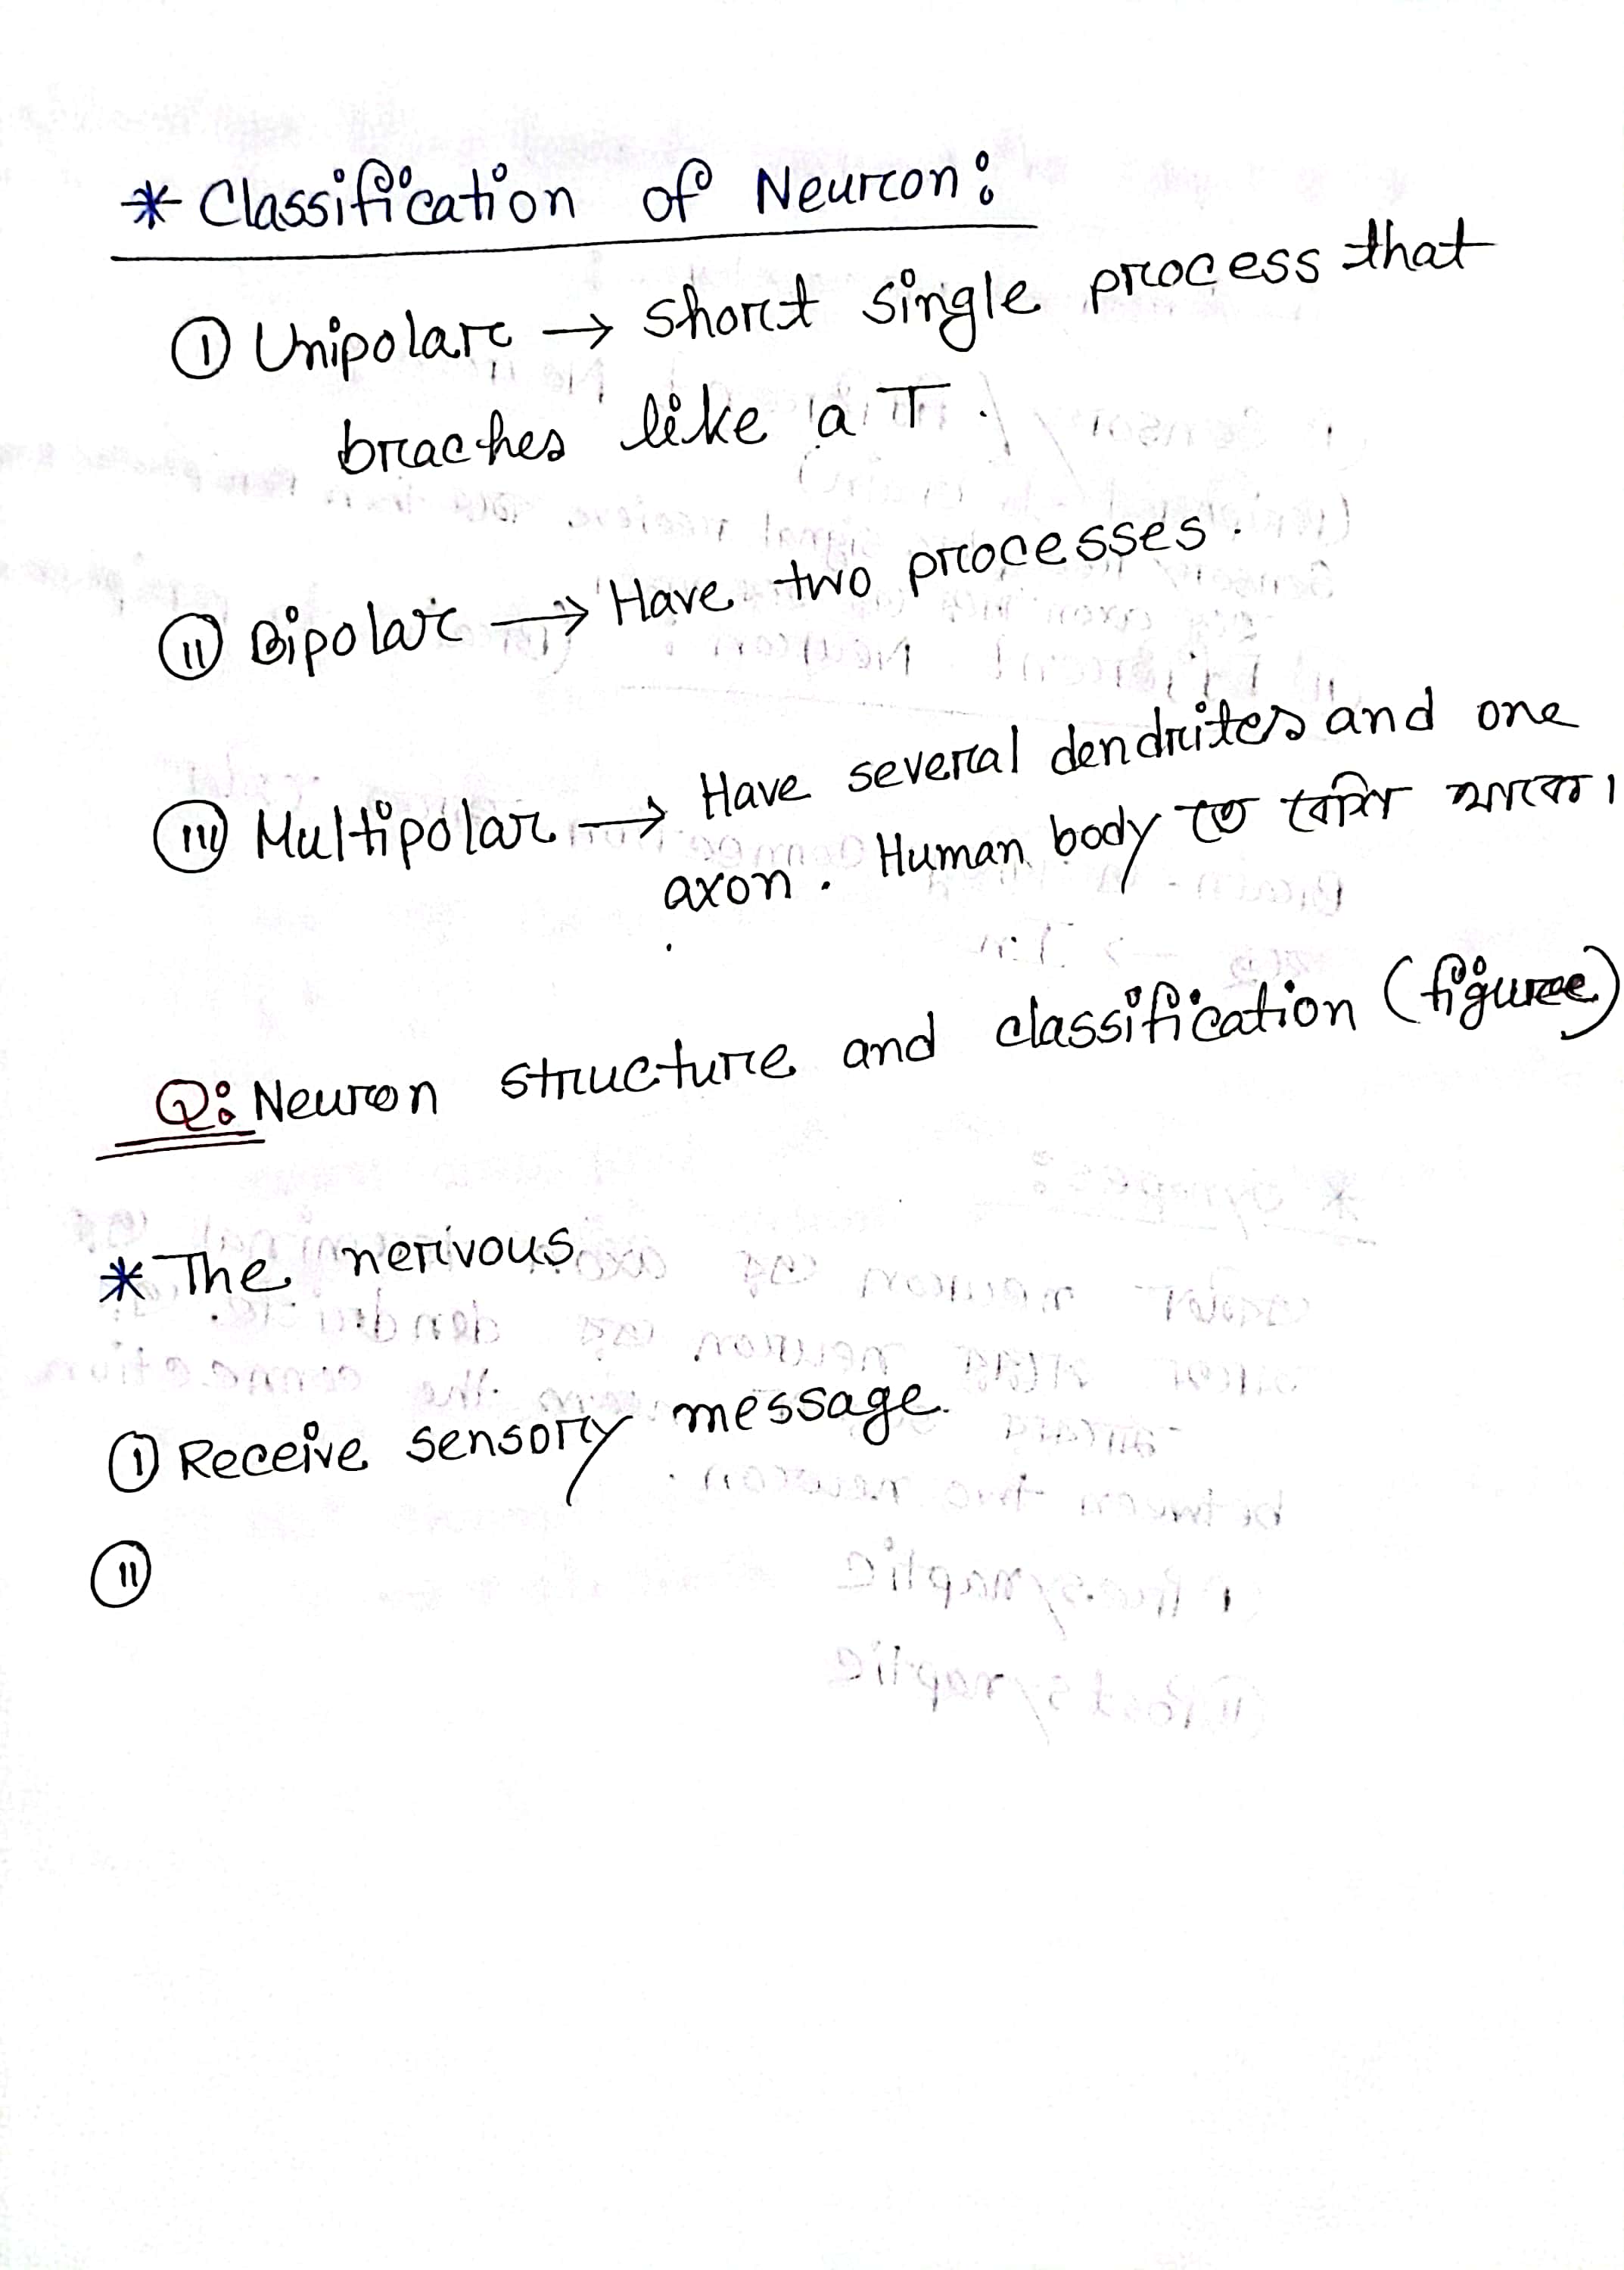 * Classification of Neuron:
① Unipolar → short single process that
braches like a T.
⑪ Bipolar → Have two processes.
⑪ı Multipolar → Have several dendrites and one
axon. Human body তে বেশি থাকে।
Q: Neuron structure and classification (figure)
* The nervous
① Receive sensory message.
⑪